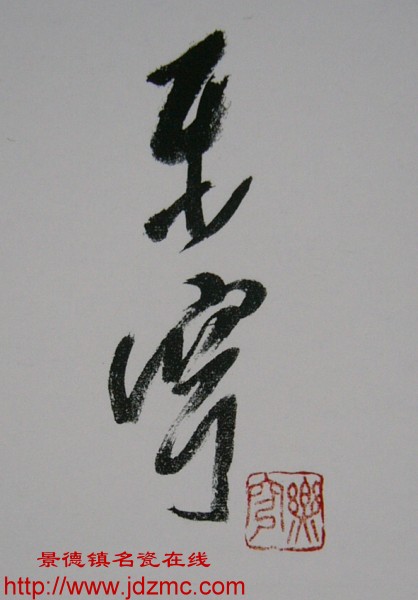 乐
穹
樂穹
景德镇名瓷在线
http://www.jdzmc.com/